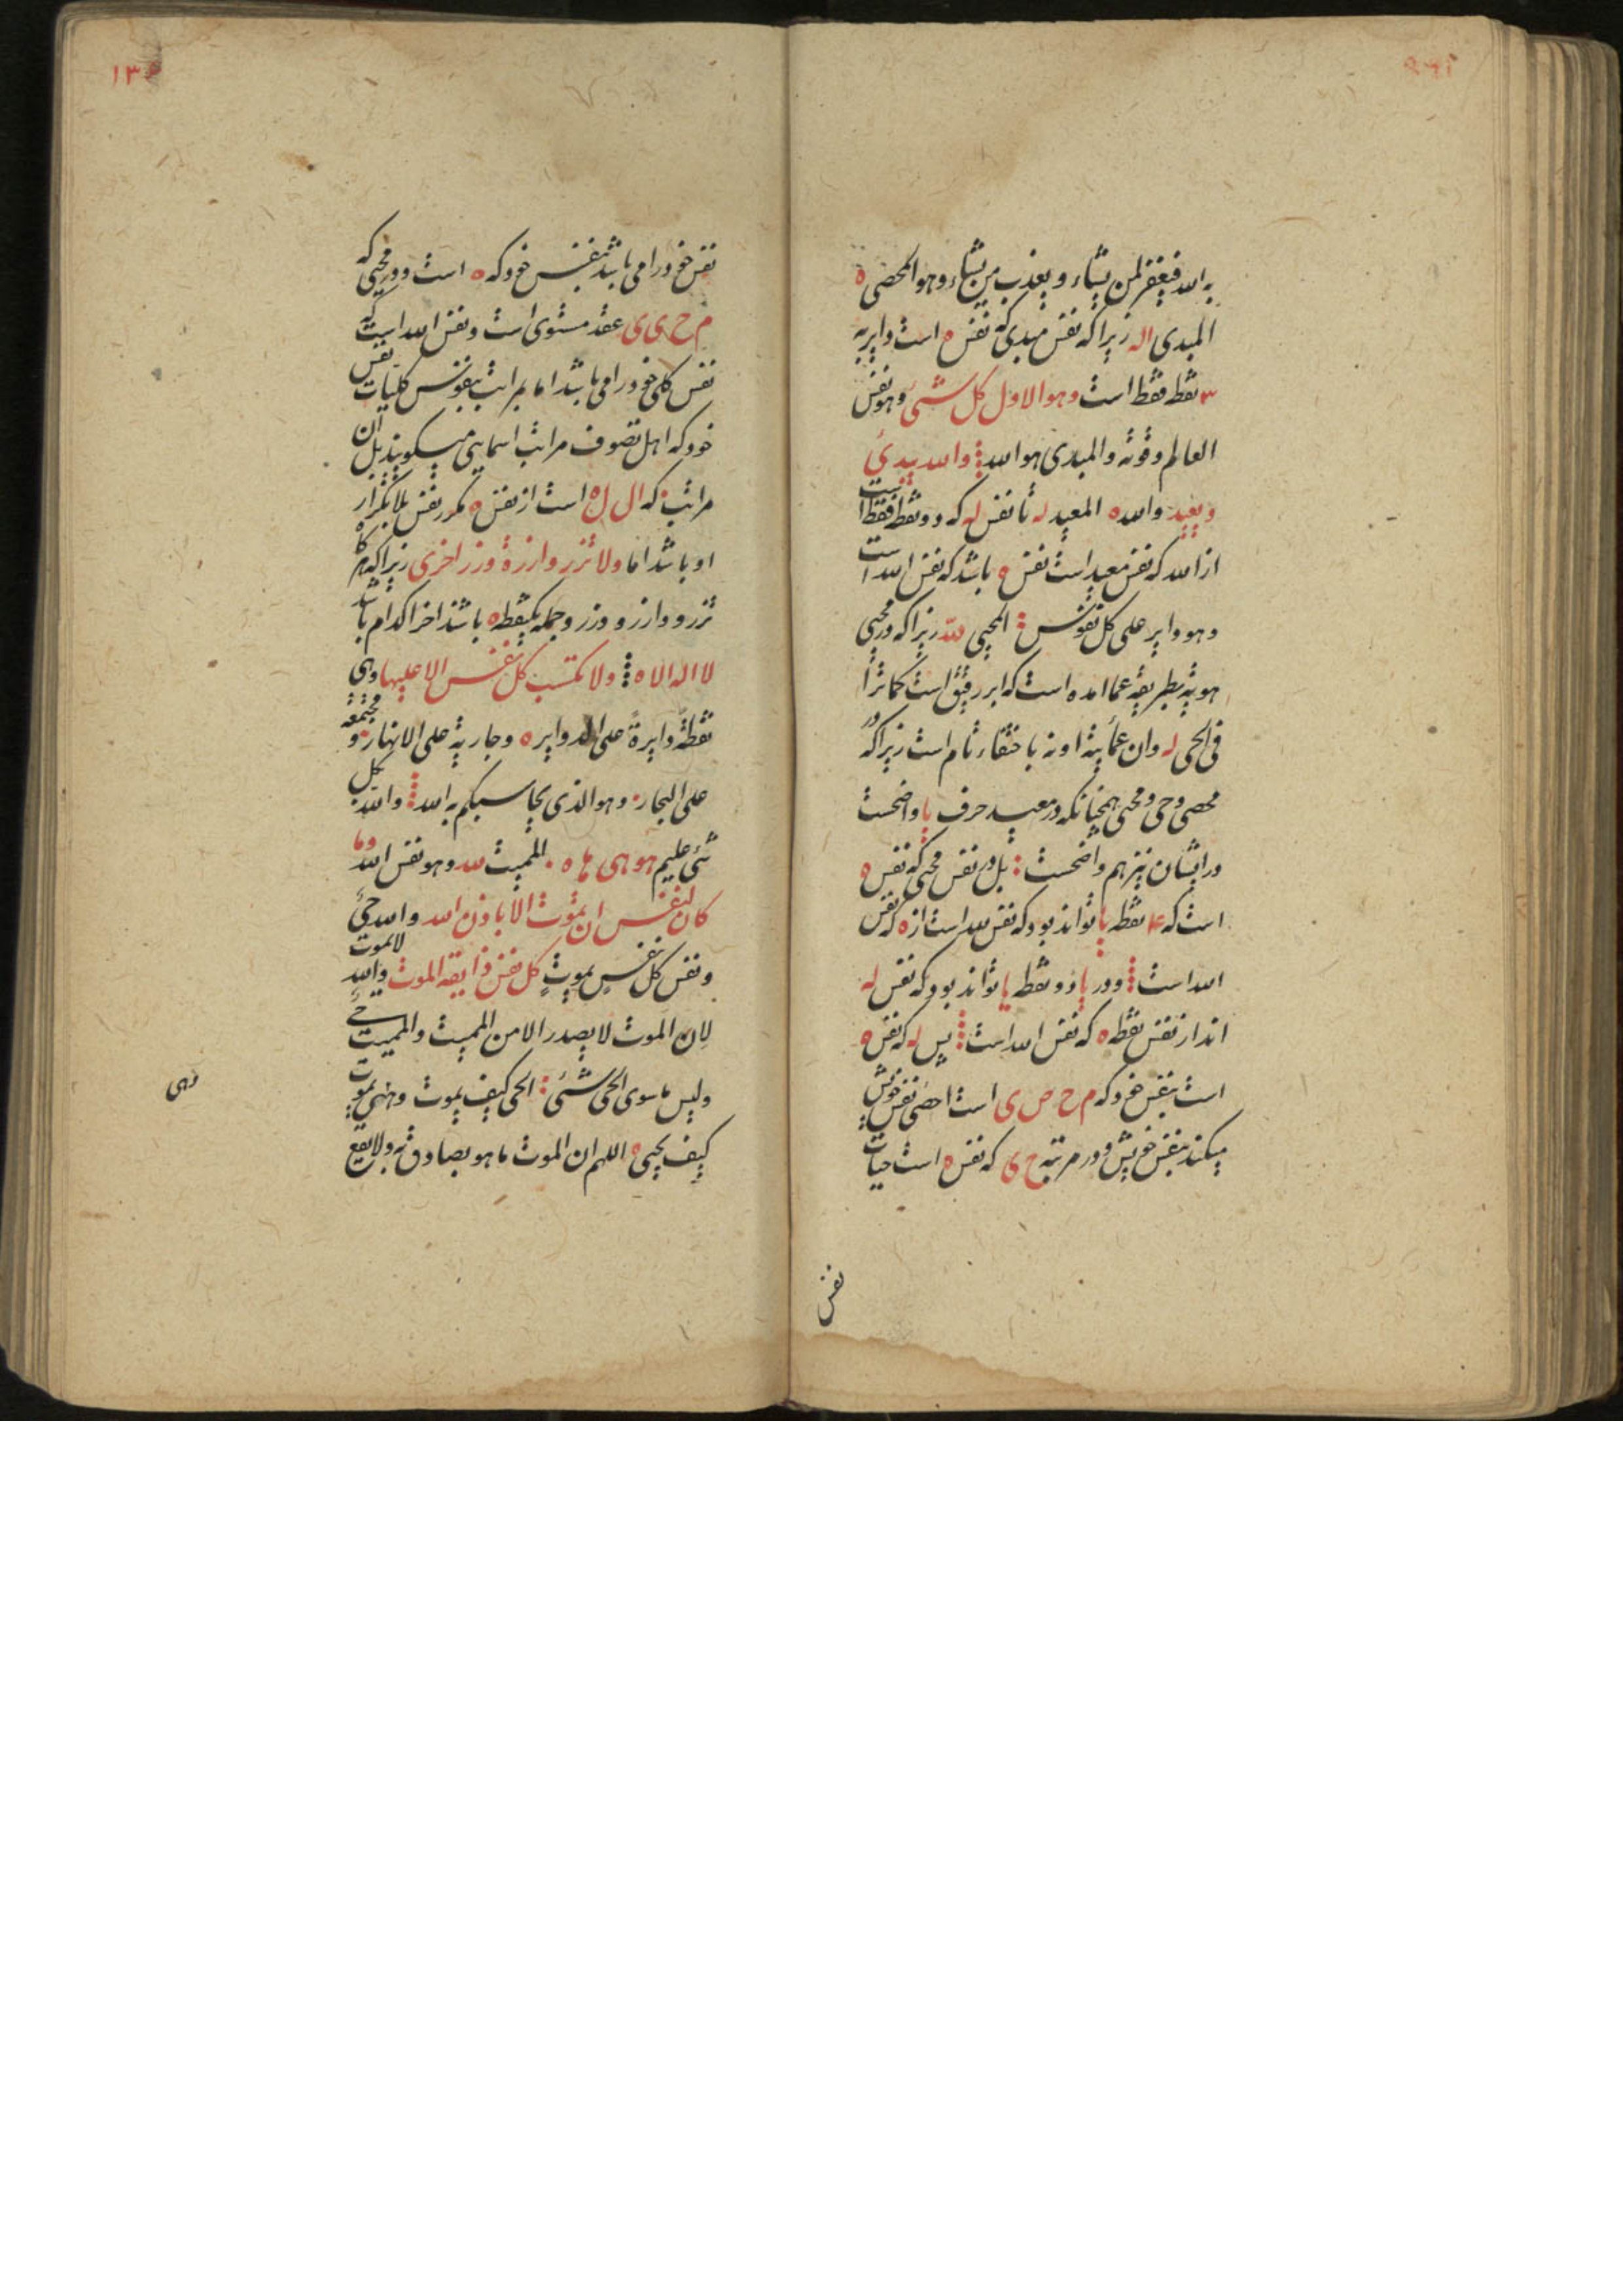 به الله فيغفر لمن يشاء و يعذب من يشاء وهو المحصى ه
المبدى اله زیرا که نفس مبدی که نفس ه است دایره
۳ نقط فقط است وهو الاول كل شیء وهو نفس
العالم وقوته والمبدى هو الله والله يبدئ
ويعيد والله ه المعيد له تا نفس له که دو نقط فقط است
از الله که نفس معید است نفس ه باشد که نفس الله است
وهو داير على كل نفوس المحيى لله زیرا که در محیی
هویه بطریقه عما امده است که ابر رقیق است کما ترا
فى الحى له وان عمائیة او نه باختفاء تام است زیرا که در
محصی و حی و محیی همچنانکه در معید حرف یا واضحست
در ایشان نیز هم واضحست بل در نفس محیی که نفس ه
است که ۴ نقطه یا تواند بود که نفس لله است از ه که نفس
الله است و در یا دو نقطه یا تواند بود که نفس له
اند از نفس نقطه ه که نفس الله است پس له که نفس ه
است بنفس خود که م ح ص ی است احصی نفس خویش
میکند بنفس خویش و در مرتبه ح ی که نفس ه است حیات
نفس
۱۳۰
نفس خود را می باشد بنفس خود که ه است و در محیی که
م ح ی ی عقد مستوی است و نفس الله است که
نفس کلی خود را می باشد اما بمراتب بنفوس کلیات نفس
خود که اهل تصوف مراتب اسمایی میگویند بل ان
مراتب که ال ل ه است از نفس ه مکرر نفس بلا تکرار
او باشد اما ولا تزر وازرة وزر اخرى زیرا که هر گاه
تزر و وازر و وزر و جمله یکنقطه ه باشند اخرا کدام باشد
لا اله الا ه ولا تكسب كل نفس الا عليها وهى
نقطة دايرة على الدوایر ه وجارية على الانهار و مجتمعه
على البحار وهو الذى يحاسبكم به الله والله بكل
شئ عليم هو هى ها ه المميت لله وهو نفس الله وما
كان لنفس ان تموت الا باذن الله والله حى لا يموت
و نفس كل نفس يموت كل نفس ذايقه الموت والله
لان الموت لا يصدر الا من المميت والمميت حى
وليس ما سوى الحى شئ الحى كيف يموت و يموت
كيف يحيى ه اللهم ان الموت ما هو بصادق به ولا يقع
وهى